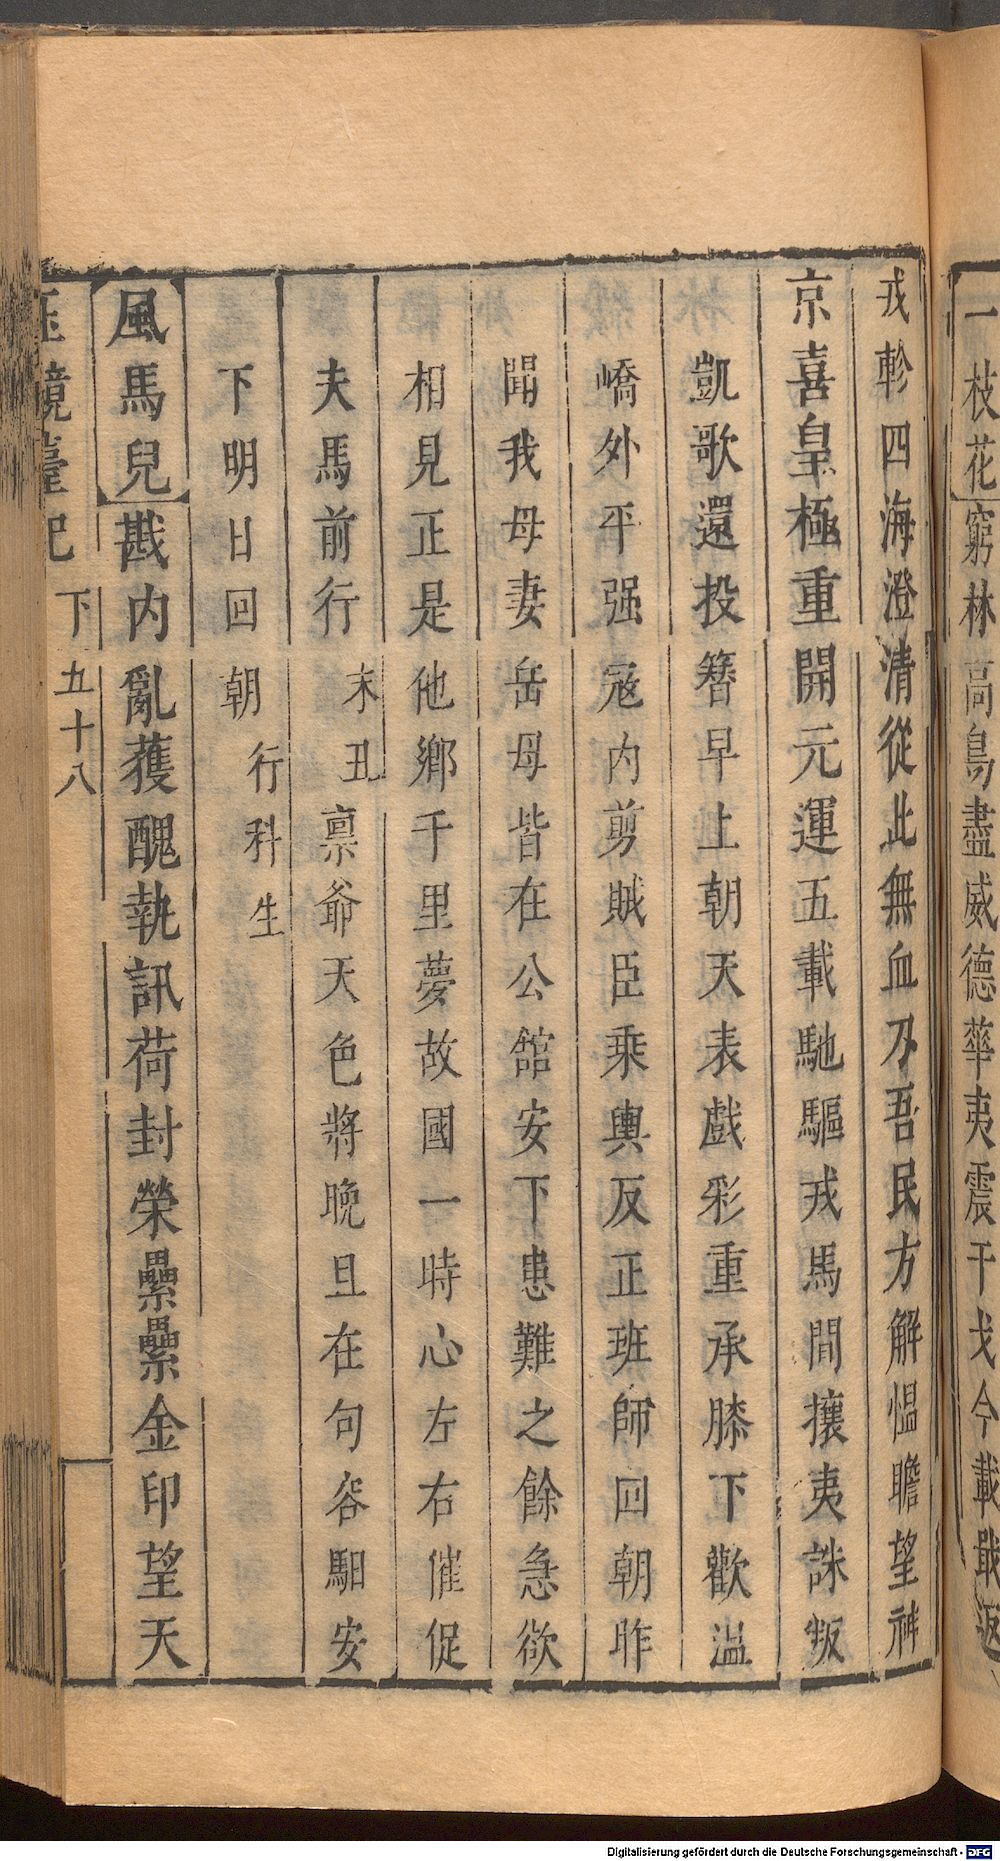 一枝花窮林高鳥盡威德華夷震干戈今載戢返
戎軫四海澄清從此無血刃吾民方解慍瞻望神
京喜皇極重開元運五載馳驅戎馬間攘夷誅叛
凱歌還投簪早上朝天表戲彩重承膝下歡溫
嶠外平强冦内剪賊臣乘輿反正班師回朝昨
聞我母妻岳母皆在公舘安下患難之餘急欲
相見正是他鄉千里夢故國一時心左右催促
夫馬前行末丑禀爺天色將晚且在句容馹安
下明日回朝行科生
風馬兒戡内亂獲醜執訊荷封榮纍纍金印望天
玉鏡臺記 下 五十八
Digitalisierung gefördert durch die Deutsche Forschungsgemeinschaft - DFG